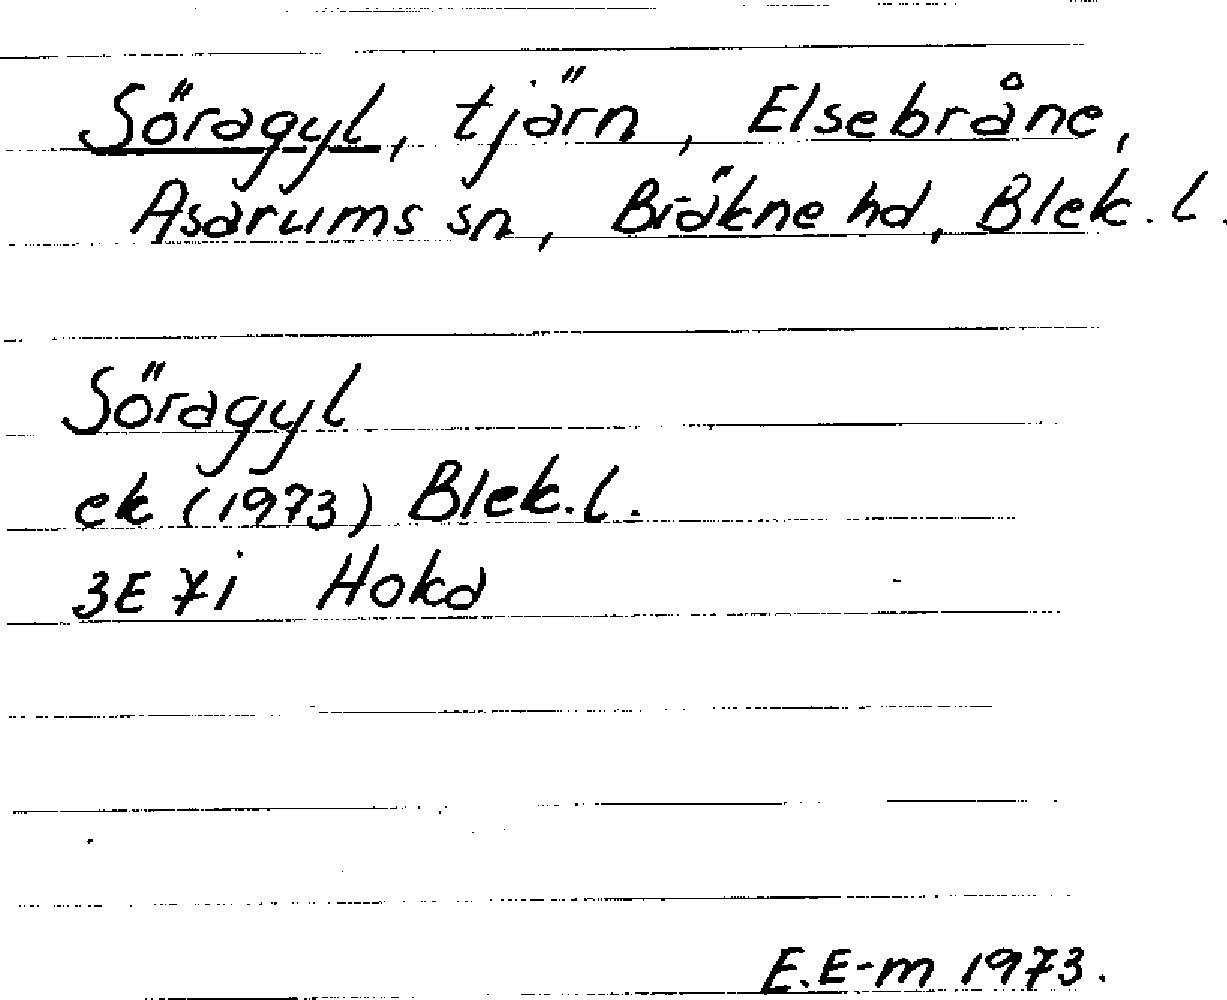 Söragyl, tjärn, Elsebråne,
Asarums sn, Bräkne hd, Blek. l.
Söragyl
ek (1973) Blek. l.
3E 7i Hoka
E.E-m 1973.